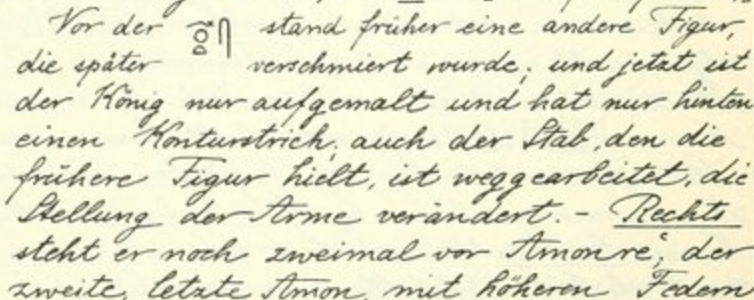 Vor der stand früher eine andere Figur,
die später verschmiert wurde; und jetzt ist
der König nur aufgemalt und hat nur hinten
einen Konturstrich; auch der Stab, den die
frühere Figur hielt, ist weggearbeitet, die
Stellung der Arme verändert. – Rechts
steht er noch zweimal vor Amonreʿ, der
zweite, letzte Amon, mit höheren Federn